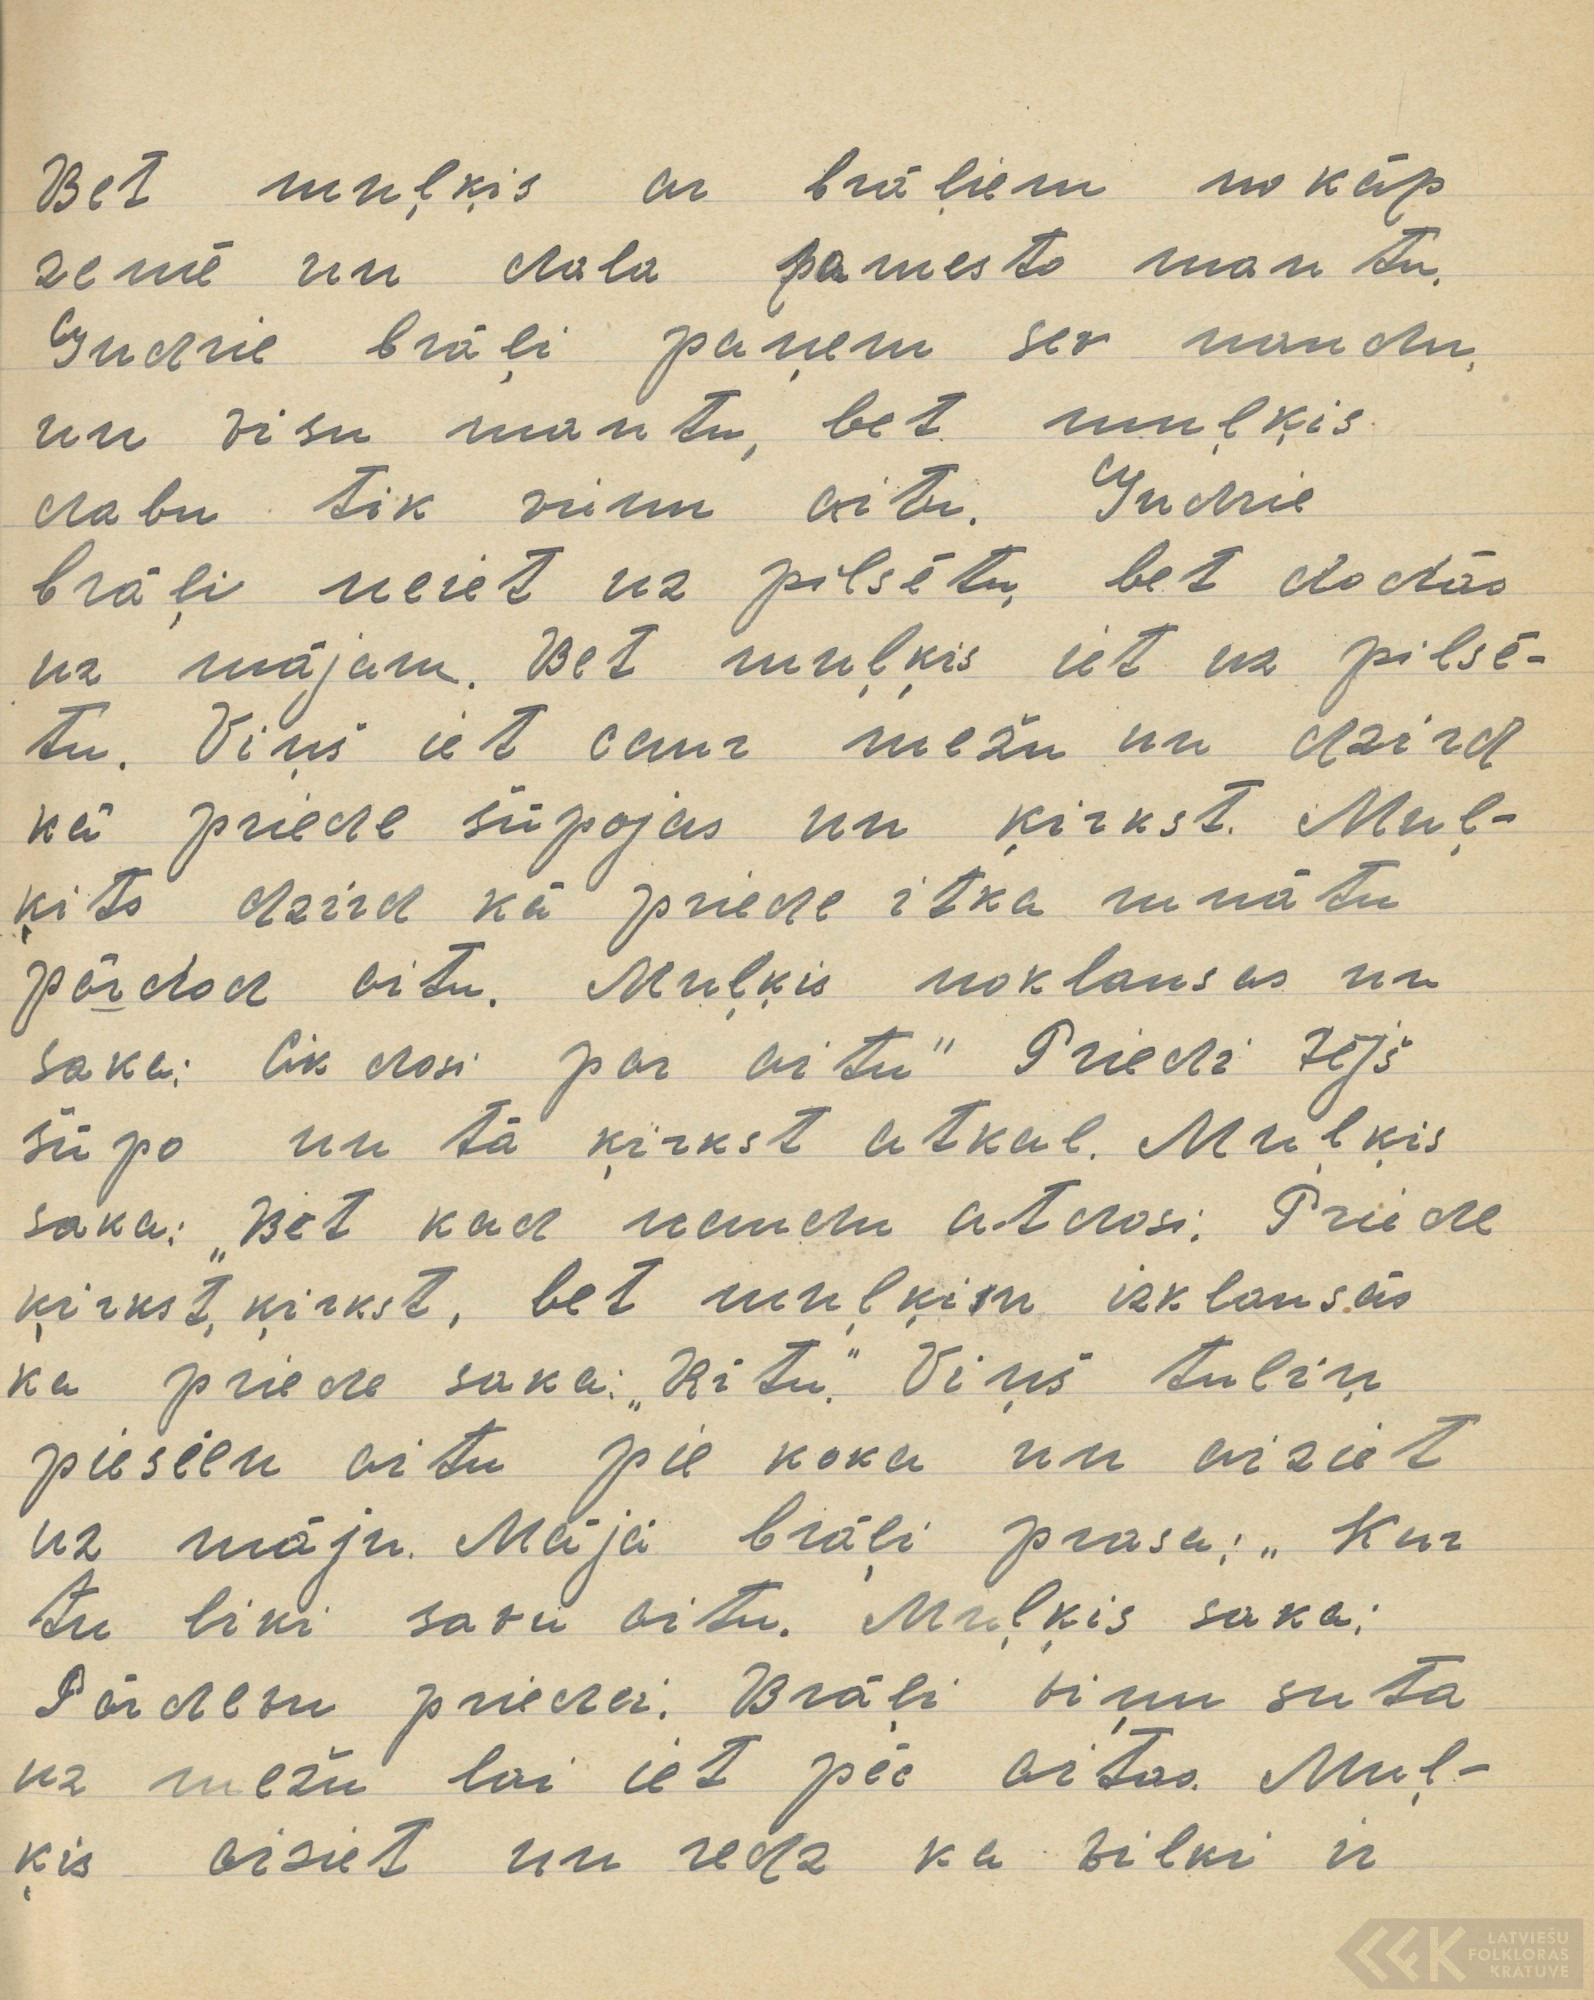 Bet muļķis ar brāļiem nokāp
zemē un dala pamesto mantu.
Gudrie brāļi paņem sev naudu,
un visu mantu, bet muļķis
dabu tik vienu aitu. Gudrie
brāļi neiet uz pilsētu, bet dodās
uz mājam. Bet muļķis iet uz pilsē-
tu. Viņš iet caur mežu un dzird
kā priede šūpojas un ķirkst. Muļ-
ķits dzird kā priede itka runātu
pārdod aitu. Muļķis noklausas un
saka: Cik dosi par aitu" Priedi vējš
šūpo un tā ķirkst atkal. Muļķis
saka: „Bet kad naudu atdosi. Priede
ķirkst, ķirkst, bet muļķim izklausās
ka priede saka: „Rītu." Viņš tuliņ
piesēen aitu pie koka un aiziet
uz māju. Mājā brāļi prasa: „Kur
tu liki savu aitu. Muļķis saka:
Pārdevu priedei. Brāļi viņu suta
uz mežu lai iet pēc aitas. Muļ-
ķis aiziet un redz ka vilki ir
LATVIEŠU
FOLKLORAS
KRĀTUVE